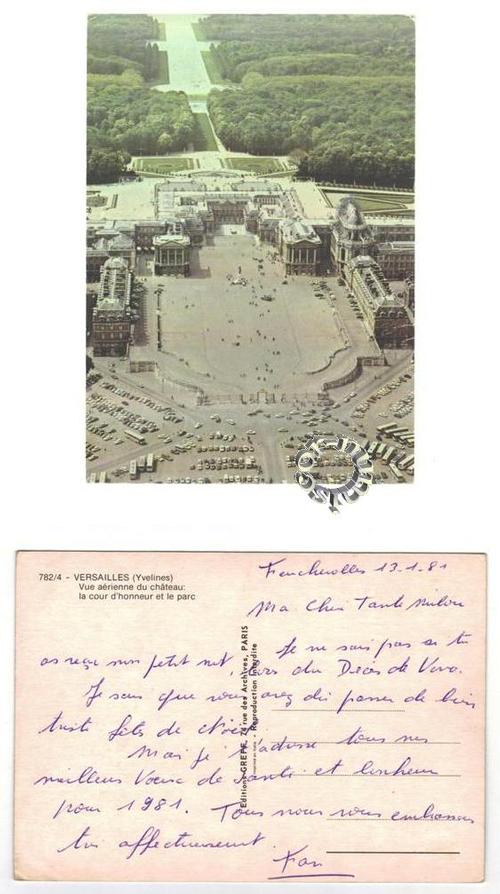 782/4 - VERSAILLES (Yvelines)
Vue aérienne du château:
la cour d'honneur et le parc
Editions GREFF, 74 rue des Archives, PARIS
Reproduction Interdite
Feucherolles 13-1-81
Ma Chère Tante
Je ne sais pas si tu
as reçu mon petit mot, lors du Décès de
Je sais que vous avez dû passer de bien
triste fêtes de Noël
Mais je t'adresse tous mes
meilleurs Vœux de Santé et bonheur
pour 1981. Tous nous vous embrassons
très affectueusement.